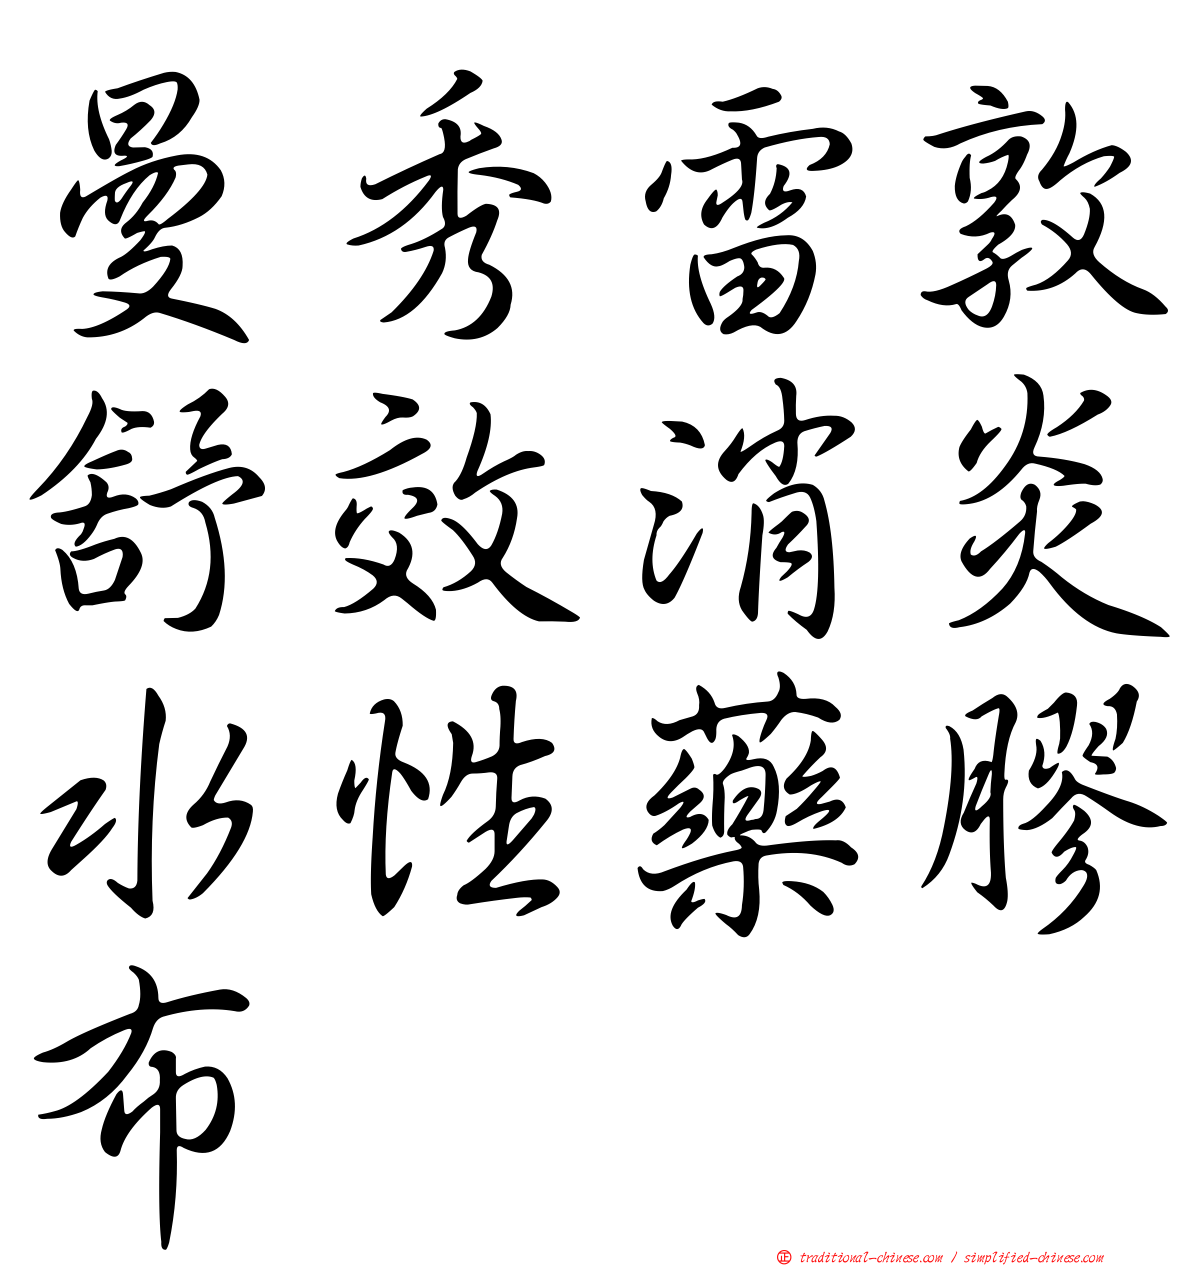 曼秀雷敦
舒效消炎
水性藥膠
布
㊣ traditional-chinese.com / simplified-chinese.com